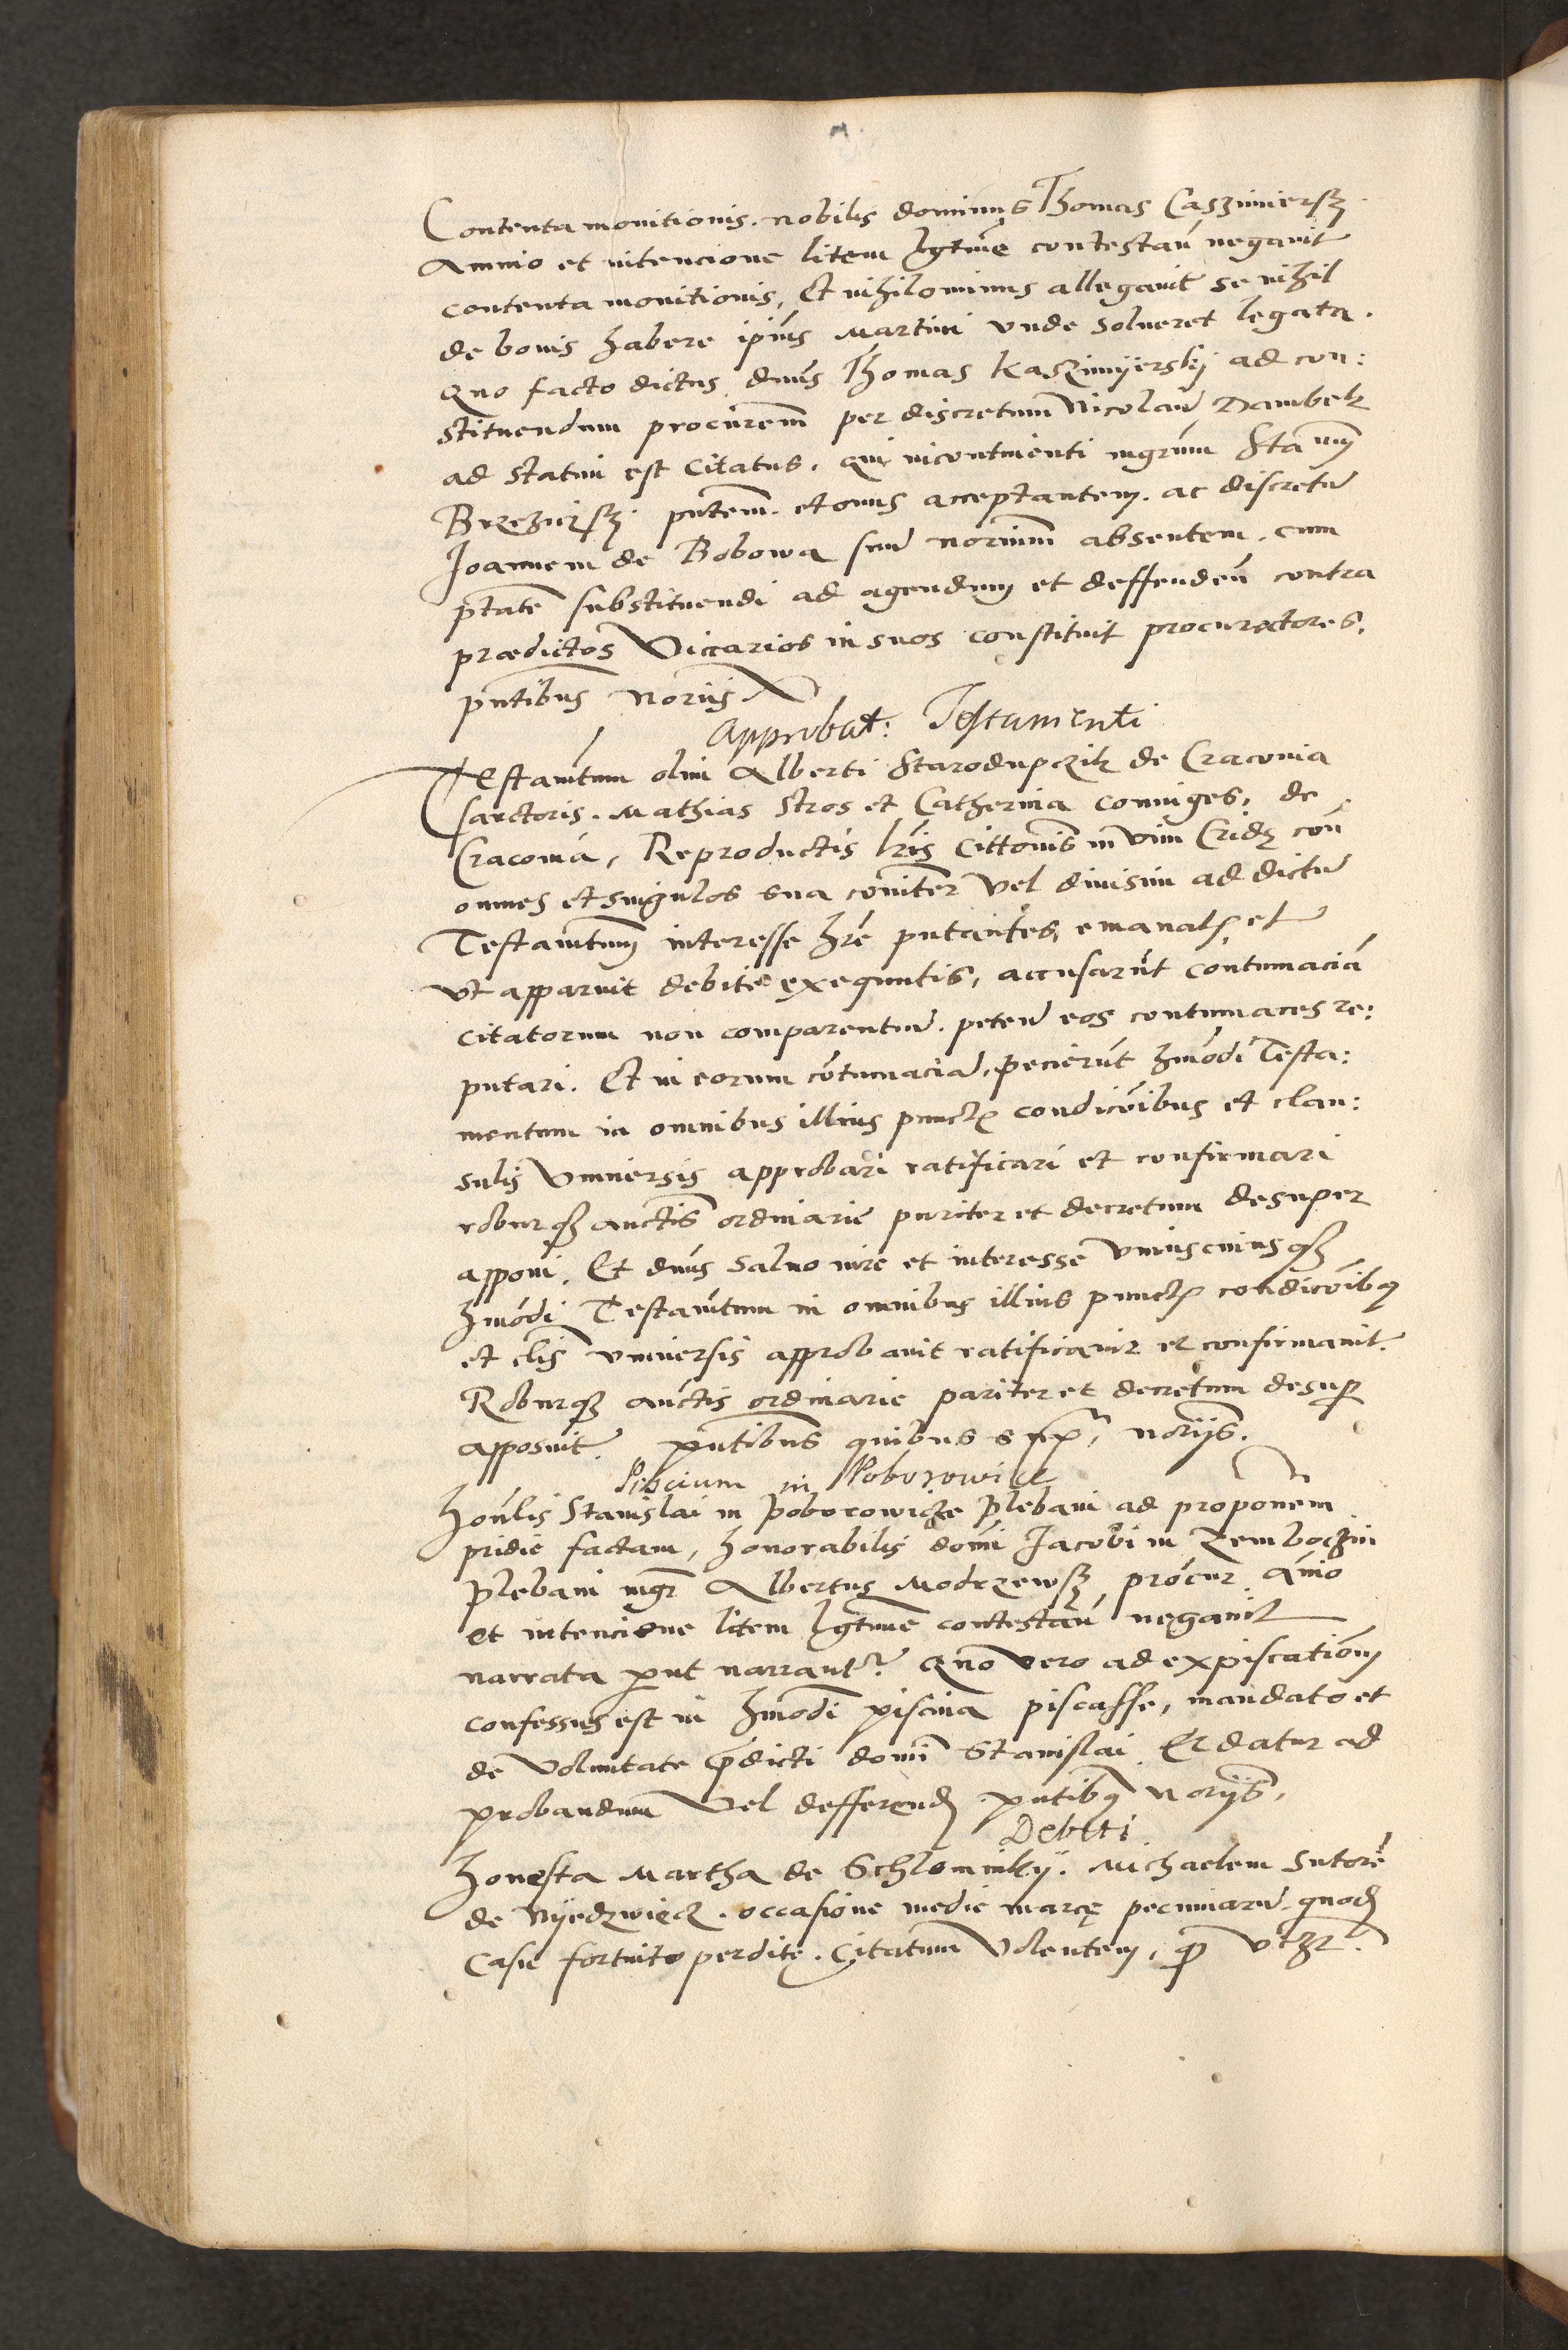 Contenta monitionis. nobilis dominus Thomas Caszimiersz
Animo et intencione litem lgtime contestan negavit
contenta monitionis, Et nihilominus allegavit se nihil
de bonis habere ipius Martini unde solveret legata.
Quo facto dictus dnus Thomas Kaszimyersky ad con:
stituendum procurem per discretum Nicolau Dambek
ad statim est citatus. qui incontinenti mgrum Sta
pntem. et onus acceptantem. ac discretu
Joannem de Bobowa suu norium absentem. cum
ptate substituendi ad agendum et deffenden contra
prædictos Viccarios in suos constituit procuractores.
pntibus noriis
Approbat: Testamenti
Testamtum olim Alberti Starodupczik de Cracovia
sarctoris. Mathias Stros et Catherina coniuges, de
Cracovia, Reproductis lris Cittonis in vim Cride con
omnes et singulos sua coniter vel divisim ad dictu
Testamtum interesse hre putantes, emanatis et
ut apparuit debite exequutis, accusarut contumacia
citatorum non comparentiu. peten eos contumaces re:
putari. Et in eorum cotumacia, pecierut hmodi Testa:
mentum in omnibus illius punctis condicoibus et clau:
sulis Universis approbari ratificari et confirmari
roburqz auctis ordinarie pariter et decretum desuper
apponi. Et dnus salvo iure et interesse uniuscuiusqz
hmodi Testamtum in omnibus illius punctis condicoibus
et clis universis approbavit ratificavit et confirmavit.
Roburqz auctis ordinarie pariter et decretum desup
apposuit. pntibus quibus supra noriis.
in Poborowicze
Honlis Stanislai in Poborowicze Plebani ad proponem
pridie factam, honorabilis domi Jacobi in Zemboczin
Plebani mgr Albertus Modrzewsz procur Aio
et intencione litem lgtime contestan negavit
narrata put narrant. Quo vero ad expiscationem
confessus est in hmodi piscina piscasse, mandato et
de voluntate pdicti domi Stanislai Et datur ad
probandum vel defferend pntibus noriis.
Debiti
Honesta Martha de Schlomniky. Michaelem Sutore
de Nyedzwiedz. occasione medie marce pecuniaru. quod
casu fortuito perdite. Citatum volentem, p